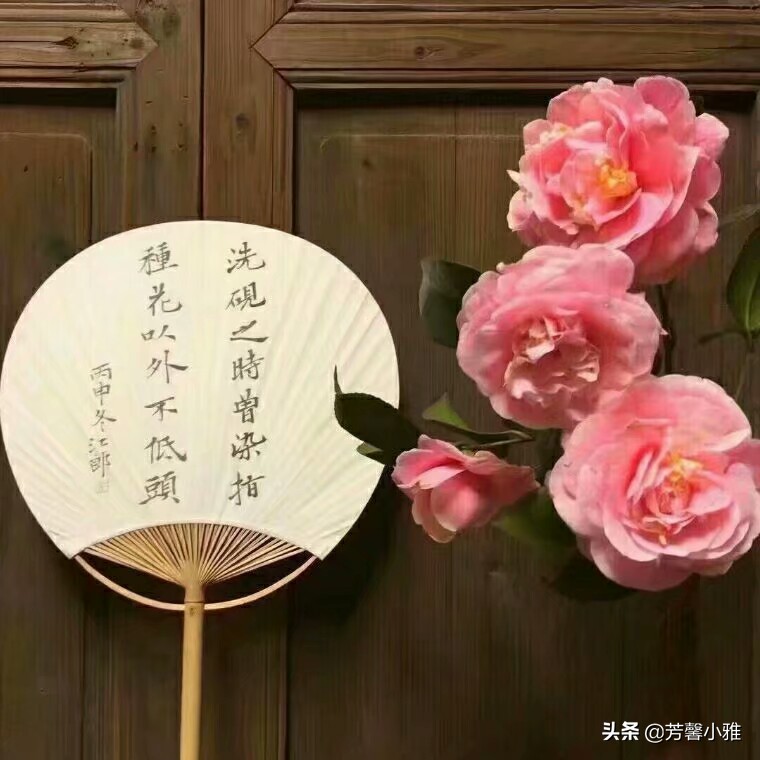 洗硯之時曾染指
種花以外不低頭
丙申冬江郎
头条 @芳馨小雅